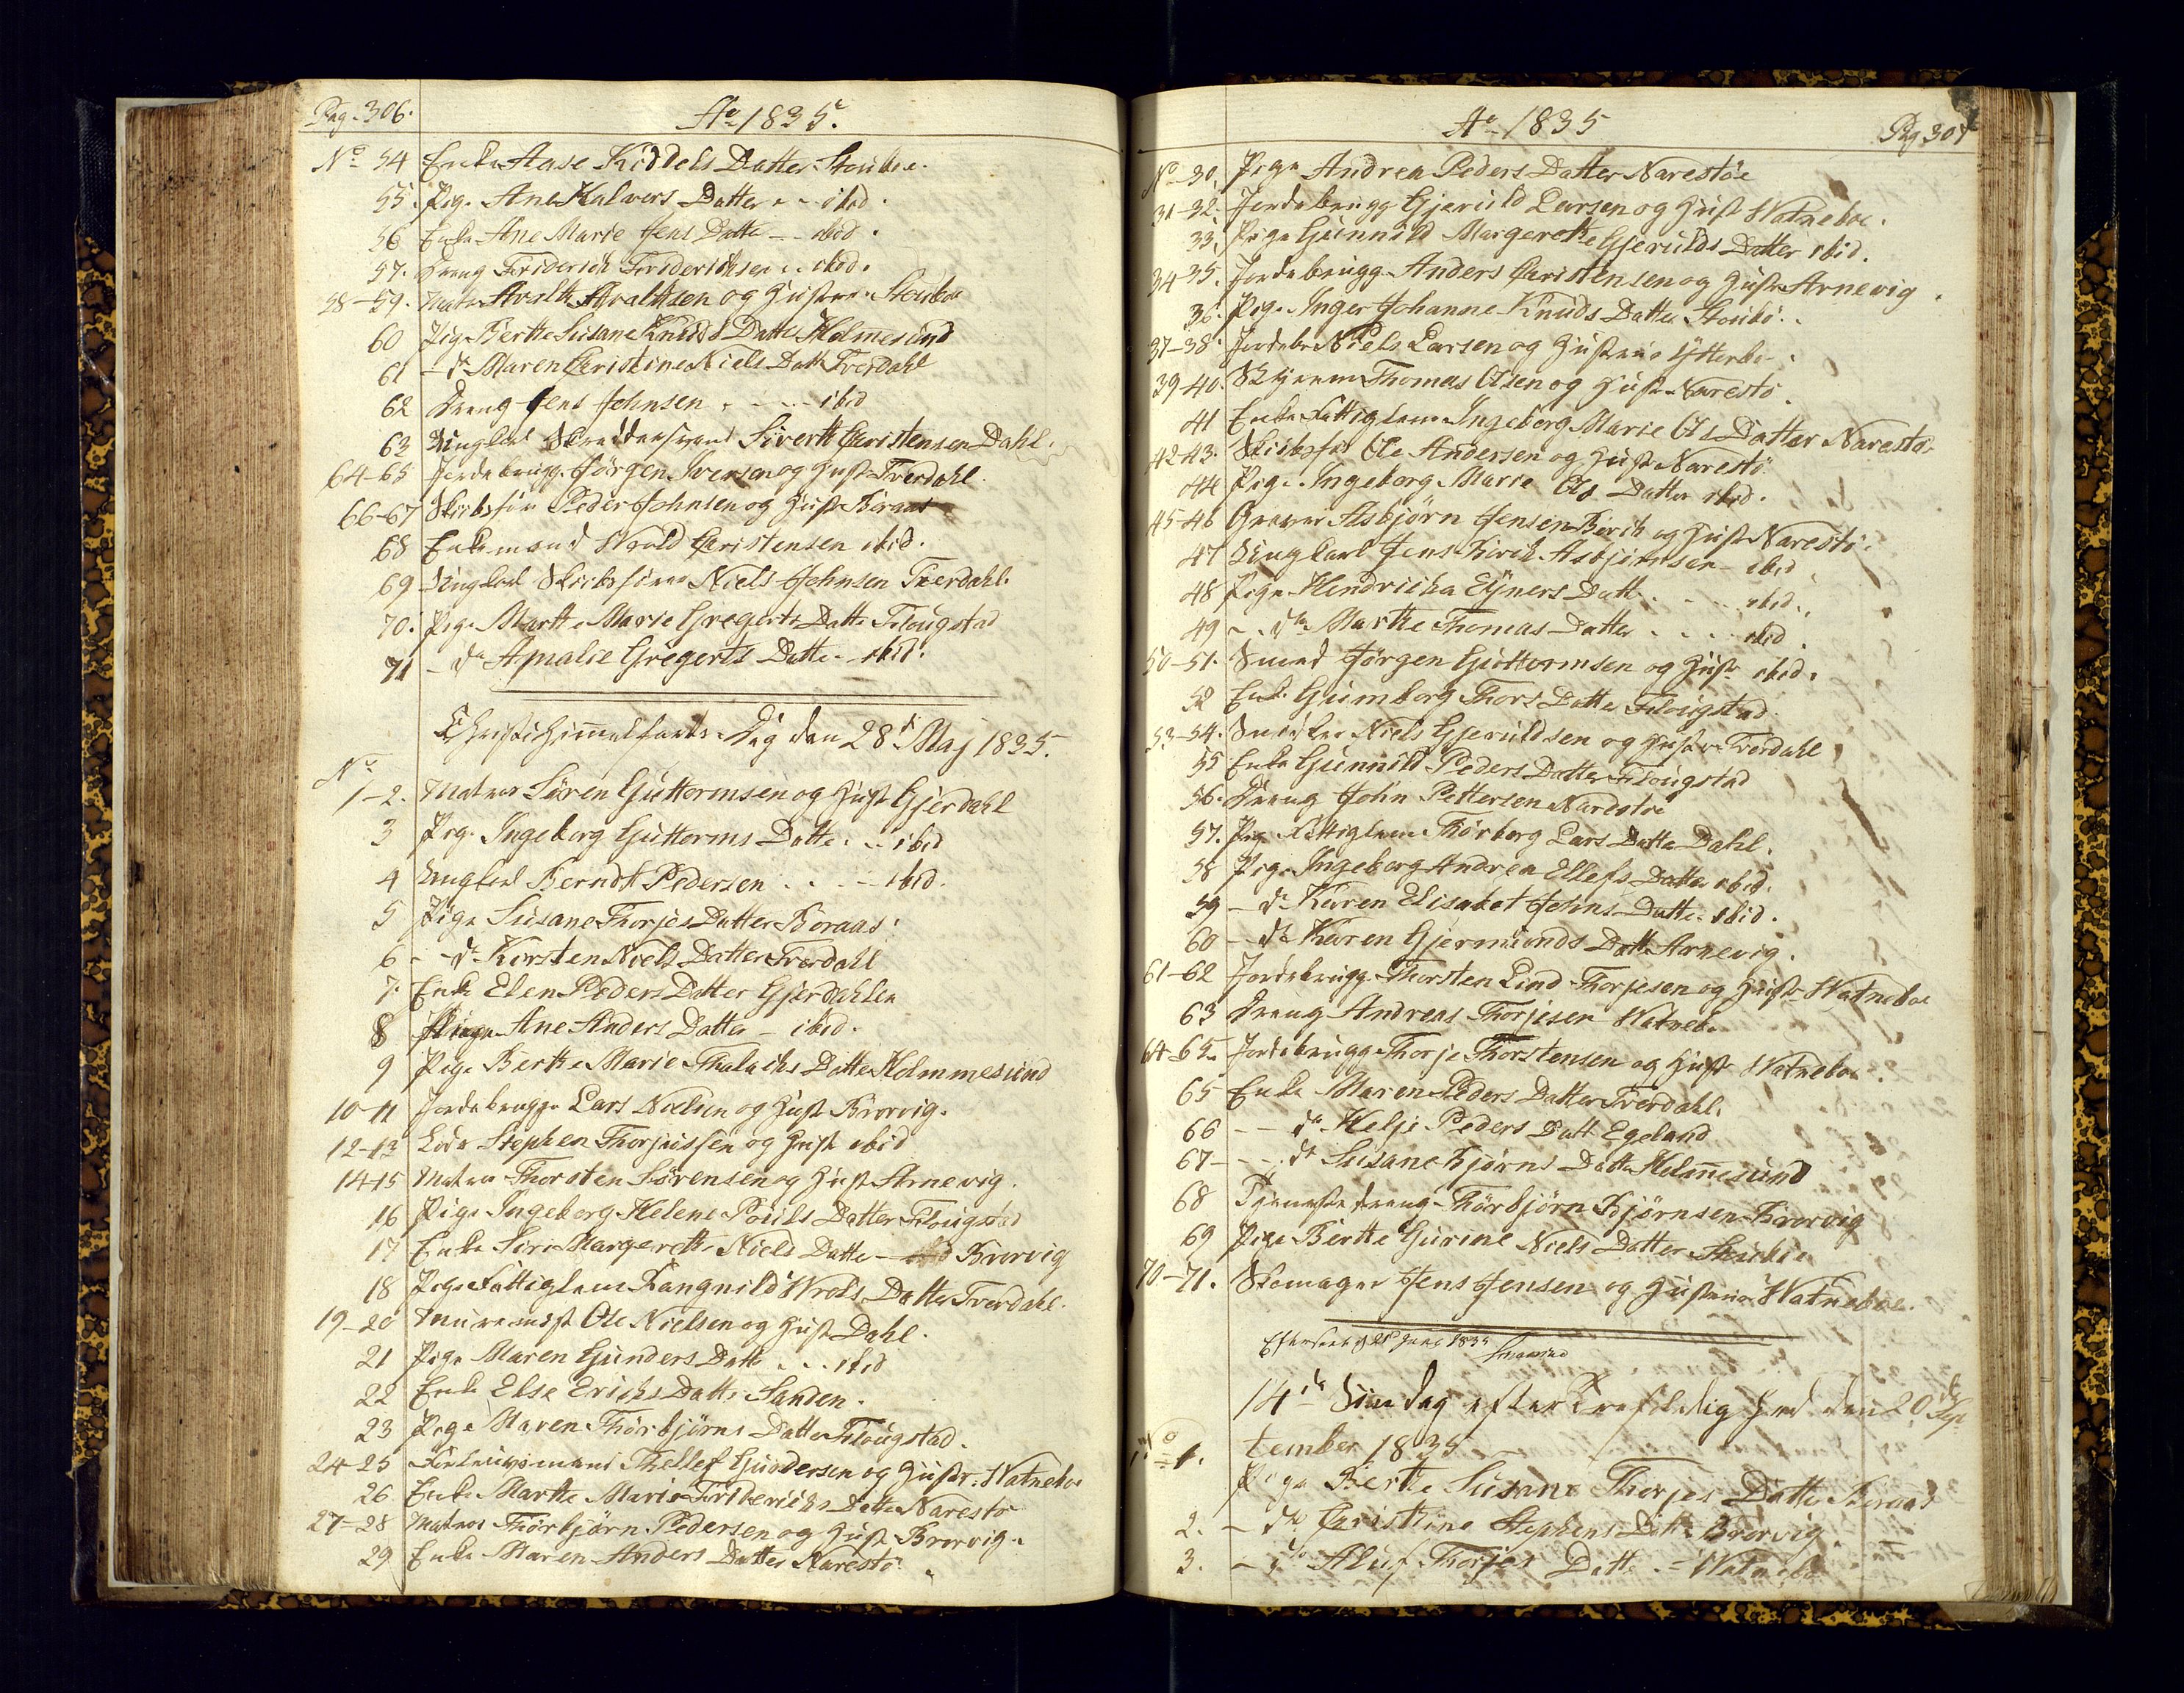 Pag. 306.
Ao 1835.
No 54 Enke Aase Kiddels Datter Stoubøe.
55. Pige Ane Halvors Datter - - ibid.
56 Enke Ane Marie Jens Datte - ibid.
57. Dreng Friderich Friderichsen - ibid.
58-59. Matr. og Hustrue Stoubøe
60 Pige Berthe Susane Knuds Datte Holmesund
61 - do Maren Christine Niels Datt Tverdahl
62 Dreng Jens Johnsen - - - - ibid
63 Ungkarl Skreddersvend Sivert Christensen Dahl.
64-65 Jordebrugg. Jørgen Iversen og Hust Tverdahl.
66-67 Skibsfør Peder Johnsen og Hust Boraas
68 Enkemand Wrold Christensen ibid.
69 Ungkarl Skibsfører Niels Johnsen Tverdahl.
70. Pige Marthe Marie Gregerts Datte Flougstad
71 - do Amalie Gregerts Datte - ibid.
Christi Himmelfarts-Dag den 28de Maj 1835.
No
1-2. Matros Søren Guttormsen og Hust Gjerdahl
3 Pige Ingeborg Guttorms Datte - - ibid
4 Ungkarl Berndt Pedersen - - - ibid.
5 Pige Susane Thorjes Datter Boraas
6 - do Kirsten Niels Datter Tverdahl
7. Enke Elen Peders Datter Gjerdahlen
8 Pige Ane Anders Datter - ibid.
9 Pige Berthe Marie Datte Holmmesund
10-11 Jordebrugger Lars Nielsen og Hust Brovig.
12-13 Lods Stephen Thorjussen og Hust ibid
14-15 Matros Thorsten Sørensen og Hust Arnevig.
16 Pige Ingeborg Helene Pouls Datter Flougstad
17 Enke Siri Margrethe Niels Datte - Brovig
18 Pige Fattiglem Rangnild Wrols Datter Tverdahl.
19-20 Ole Nielsen og Hust Dahl.
21 Pige Maren Gunders Datt - - ibid
22 Enke Else Erichs Datte Sanden.
23 Pige Maren Thorbjørns Datter Flougstad.
24-25 Thellef Gundersen og Hustr. Watneboe
26. Enke Marthe Marie Friderichs Datte Narestø
27-28 Matros Thorbjørn Pedersen og Hust Brovig.
29 Enke Maren Anders Datter Narestø
Ao 1835
Pag 307
No 30. Pige Andrea Peders Datter Narestøe
31-32. Jordebrugg Gjeruld Larsen og Hust Watneboe.
33. Pige Gunnild Margrethe Gjerulds Datter ibid.
34-35. Jordebrugg. Anders Christensen og Hustr Arnevig.
36. Pige Inger Johanne Knuds Datter Stoubø.
37-38. Jordebr Niels Larsen og Hustrue Ytterbo.
39-40. Thomas Olsen og Hust Narestø.
41 Enke Fattiglem Ingeborg Marie Ols Datter Narestø
42-43. Skibsfør Ole Andersen og Hust Narestø.
44 Pige Ingeborg Marie Ols Datter ibid.
45-46 Asbjørn Jensen Birch og Hust Narestø.
47 Ungkarl Jens Birch Asbjørnsen - ibid
48 Pige Hendricha Eyners Datt. - - - ibid.
49 - do Marthe Thomas Datter . . . . ibid
50-51. Smed Jørgen Guttormsen og Hustr ibid.
52 Enke Gumborg Thors Datte Flougstad
53-54. Niels Gjeruldsen og Hustr Tverdahl
55 Enke Gunnild Peders Datter Flougstad
56. Dreng John Pettersen Narestøe
57. Pige Fattiglem Thorborg Lars Datte Dahl.
58 Pige Ingeborg Andrea Ellefs Datter ibid.
59 - do Karen Elisabet Johns Datte ibid.
60 - do Karen Gjermunds Datte Arnevig.
61-62 Jordebrugg. Thorsten Lind Thorjesen og Hustr Watneboe
63 Dreng Andreas Thorjesen Watneb.
64-65. Jordebrugg. Thorje Thorstensen og Hust Watneboe.
65 Enke Maren Peders Datter Tverdahl.
66 - - do Helje Peders Datt Egeland
67 - - - do Susane Bjørns Datte Holmesund
68 Tjenestedreng Thorbjørn Bjørnsen Brovig
69 Pige Birthe Gurine Niels Datter Stoubøe
70-71. Skomager Jens Jensen og Hustrue Watneboe.
Efterseet d 21 Juni 1835.
14de Søndag efter Trefoldighed den 20de Sep-
tember 1835
No 1. Pige Berthe Susane Thorjes Datte Boraas
2. - do Christine Stephens Datt. Brovig.
3. - do Thorjes Datt. - Watnebo